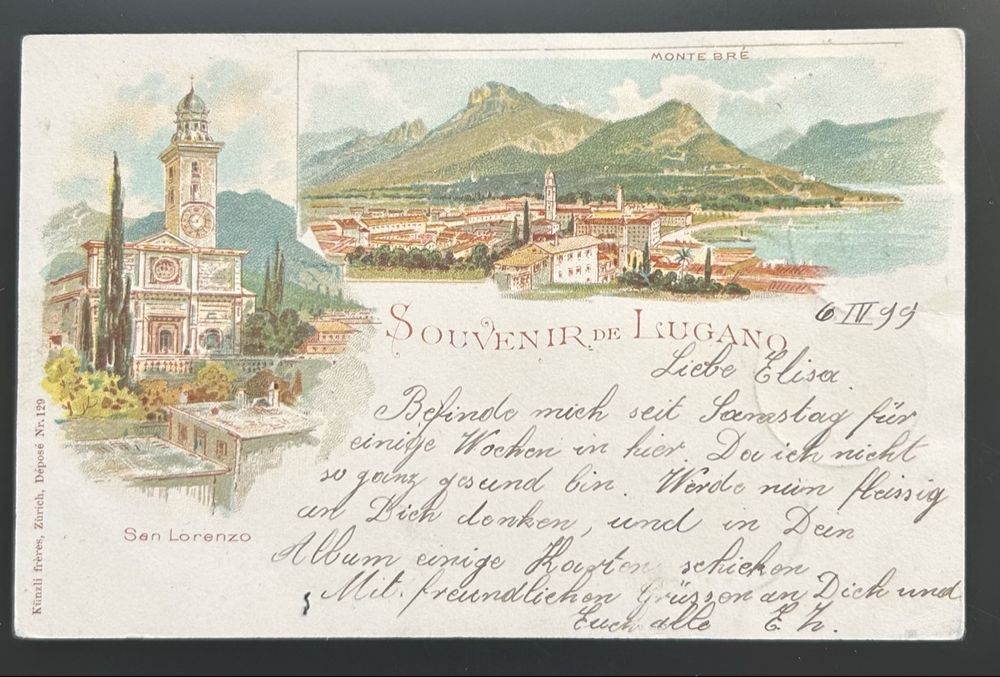 MONTE BRÉ
SOUVENIR DE LUGANO
6 IV 99
Liebe Elisa.
Befinde mich seit Samstag für
einige Wochen in hier. Da ich nicht
so ganz gesund bin. Werde nun fleissig
an Dich denken, und in Dein
Album einige Karten schicken
Mit freundlichen Grüssen an Dich und
Euch alle E. Z.
San Lorenzo
Künzli frères, Zürich, Déposé Nr. 129